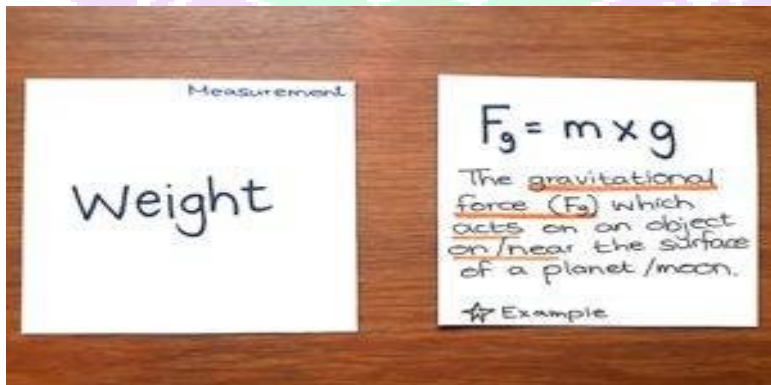 Measurement
Weight
Fg = m x g
The gravitational
force (Fg) which
acts on an object
on/near the surface
of a planet/moon.
☆ Example